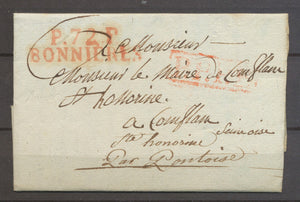 P.72.P
BONNIERES
A Monsieur
Monsieur le Maire de Conflans
Ste honorine
a Conflans
Ste honorine Seine oise
Par Pontoise